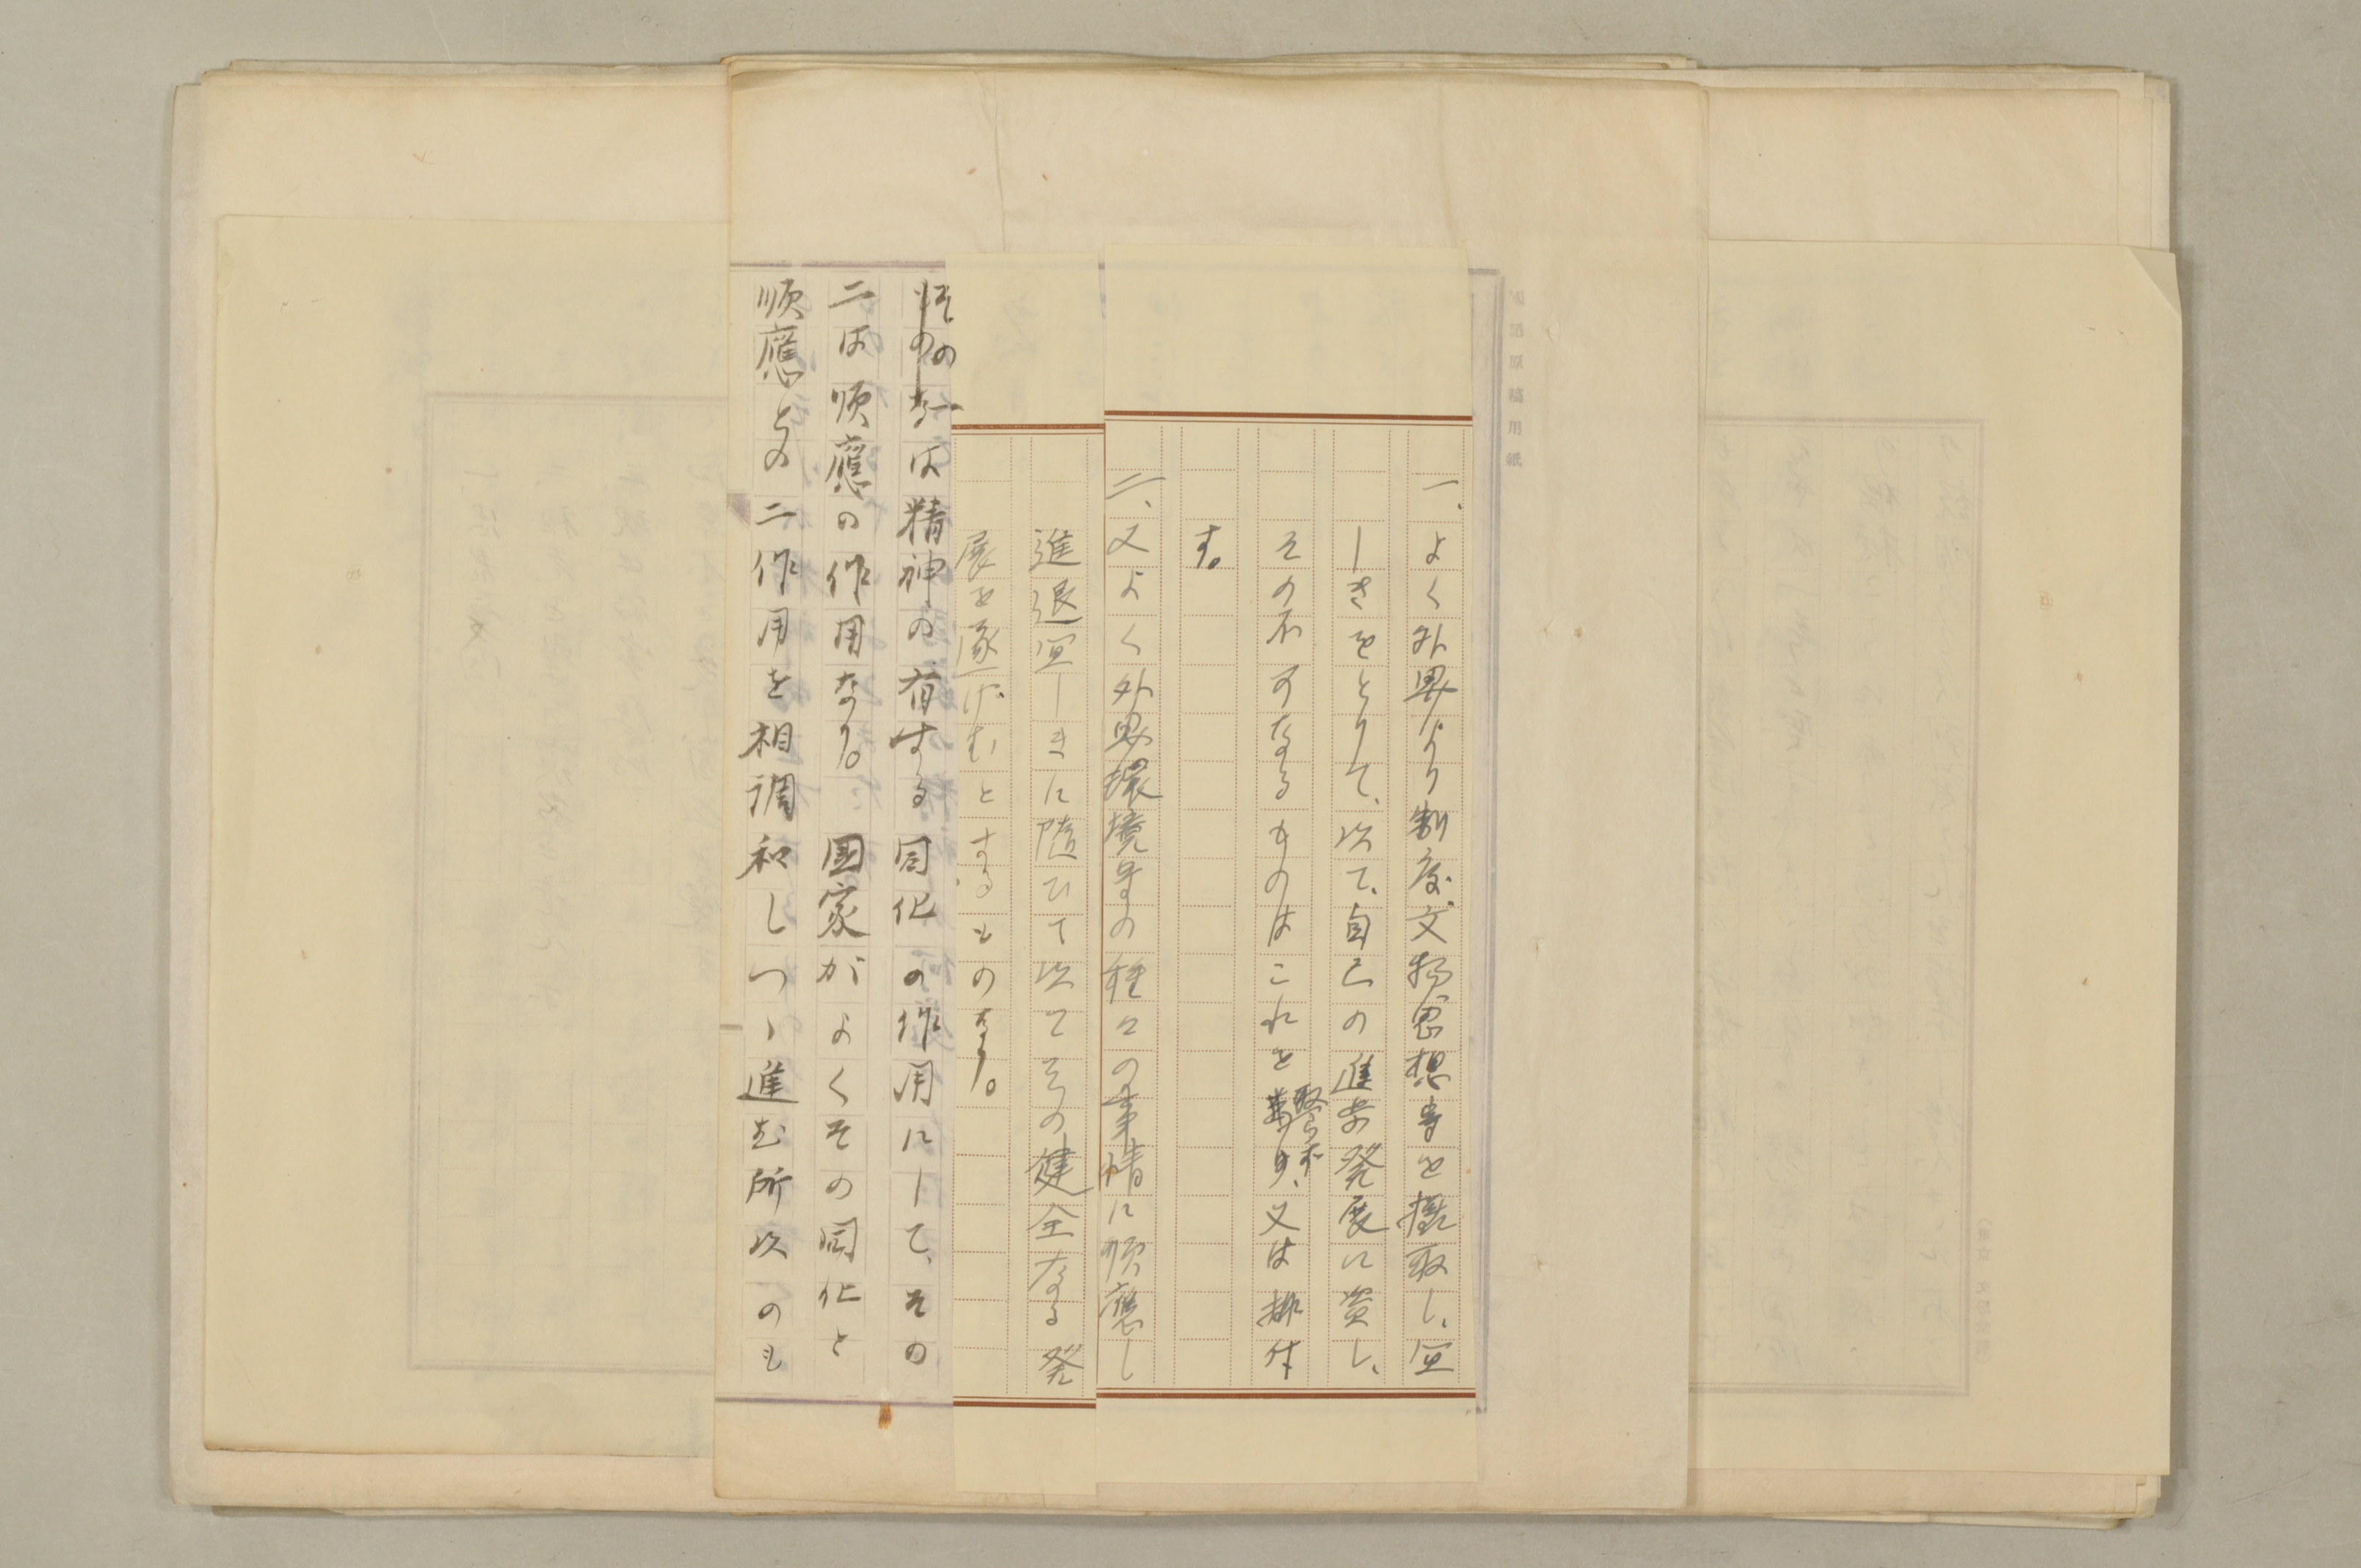 一、よく外界より制度文物思想等を攝取し、宜
しきをとりて、以て、自己の進歩発展に資し、
その不可なるものはこれを釋てず、又は排斥
す。
二、又よく外界環境等の種々の事情に順應し
進退宜しきに随ひて以てその健全なる発
展を遂げむとするものなり。
その一は精神の有する同化の作用にして、その
二は順應の作用なり。國家がよくその同化と
順應との二作用を相調和しつゝ進む所以のも